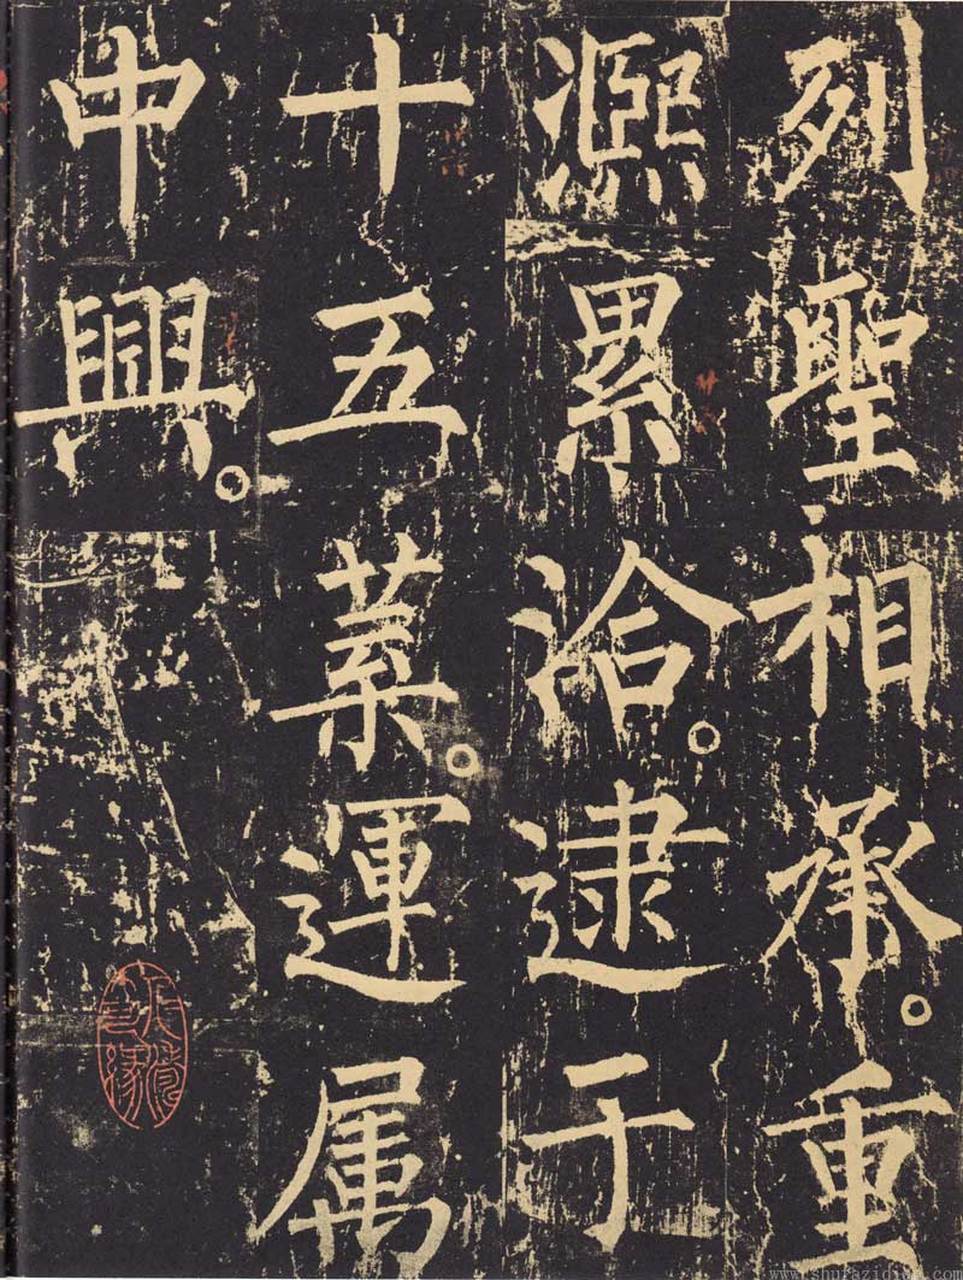 列聖相承。重
熙累洽。逮于
十五葉。運属
中興。
www.shufazidian.com